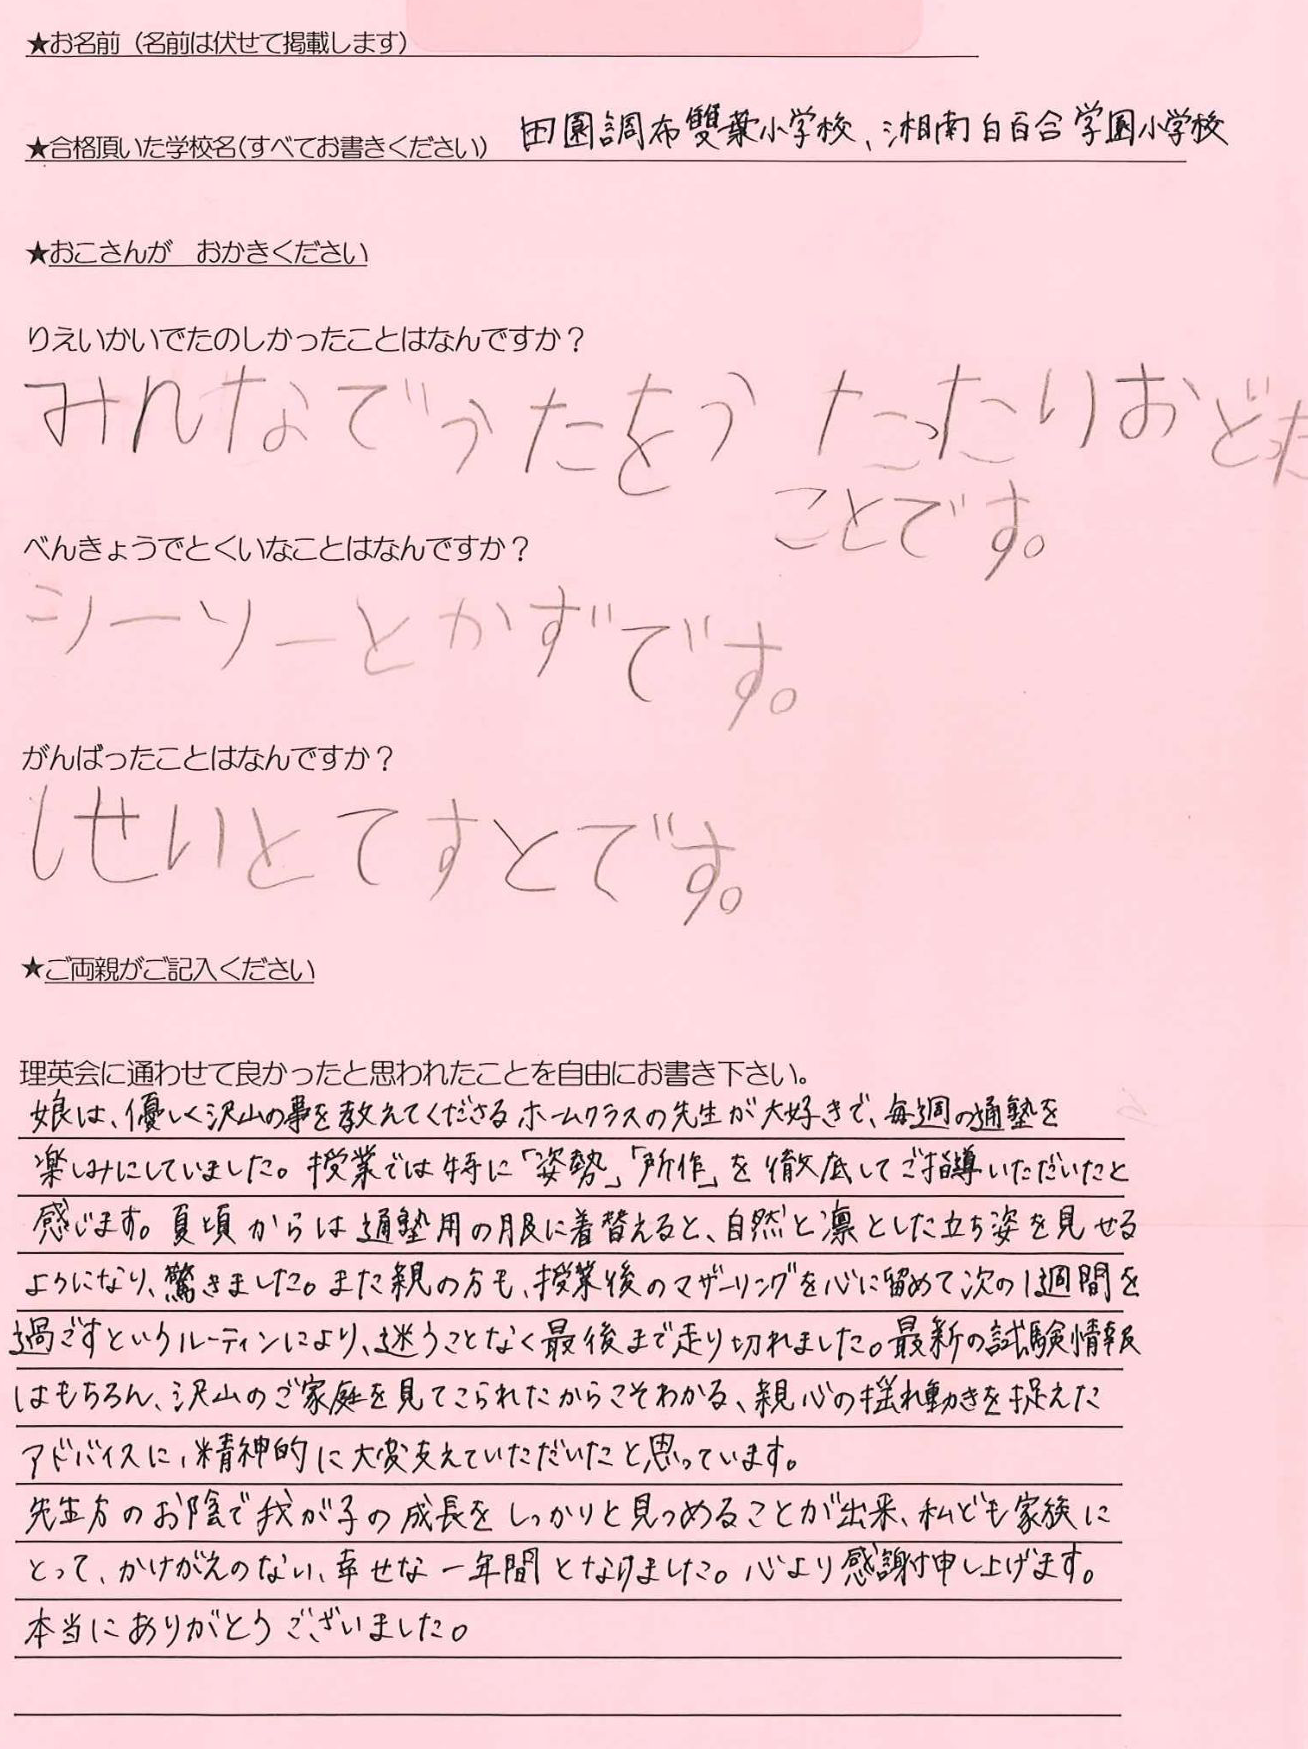 ★お名前（名前は伏せて掲載します）
★合格頂いた学校名(すべてお書きください) 田園調布雙葉小学校、湘南白百合学園小学校
★おこさんが　おかきください
りえいかいでたのしかったことはなんですか？
みんなでうたをうたったりおどった
ことです。
べんきょうでとくいなことはなんですか？
シーソーとかずです。
がんばったことはなんですか？
しせいとてすとです。
★ご両親がご記入ください
理英会に通わせて良かったと思われたことを自由にお書き下さい。
娘は、優しく沢山の事を教えてくださるホームクラスの先生が大好きで、毎週の通塾を
楽しみにしていました。授業では特に「姿勢」「所作」を徹底してご指導いただいたと
感じます。夏頃からは通塾用の服に着替えると、自然と凛とした立ち姿を見せる
ようになり、驚きました。また親の方も、授業後のマザーリングを心に留めて次の1週間を
過ごすというルーティンにより、迷うことなく最後まで走り切れました。最新の試験情報
はもちろん、沢山のご家庭を見てこられたからこそわかる、親心の揺れ動きを捉えた
アドバイスに、精神的に大変支えていただいたと思っています。
先生方のお陰で我が子の成長をしっかりと見つめることが出来、私ども家族に
とって、かけがえのない、幸せな一年間となりました。心より感謝申し上げます。
本当にありがとうございました。